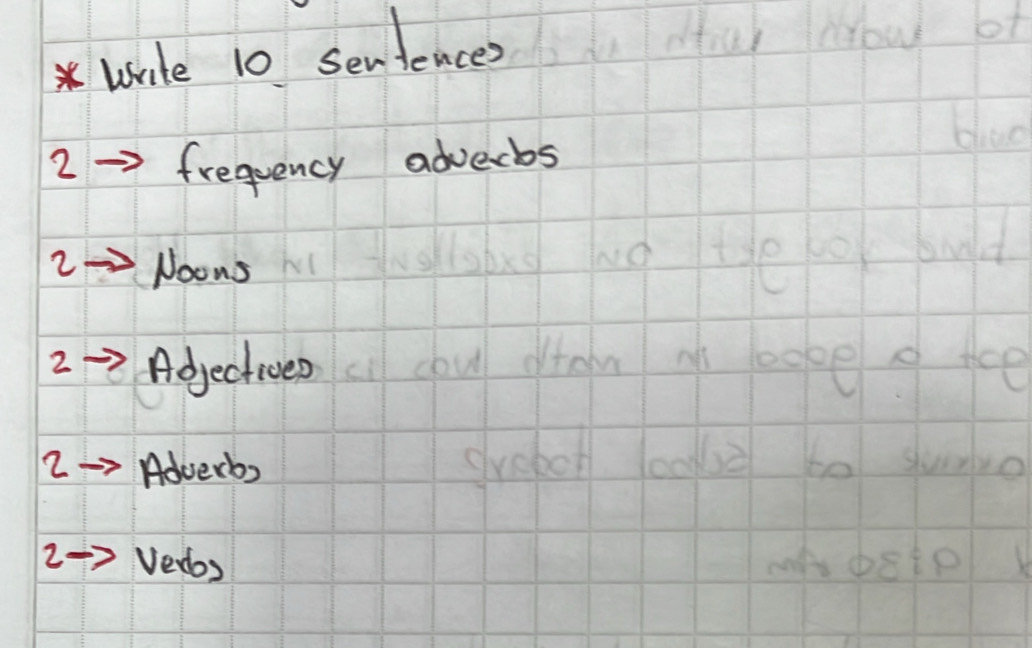 * Write 10 Sentences
2 → frequency adverbs
2 → Nouns
2 → Adjectives
2 → Adverbs
2 → Verbs